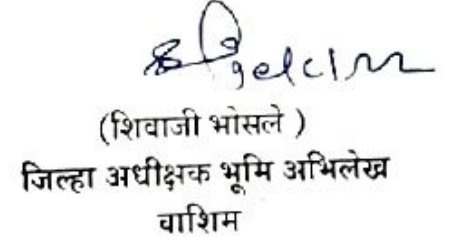 (शिवाजी भोसले )
जिल्हा अधीक्षक भूमि अभिलेख
वाशिम